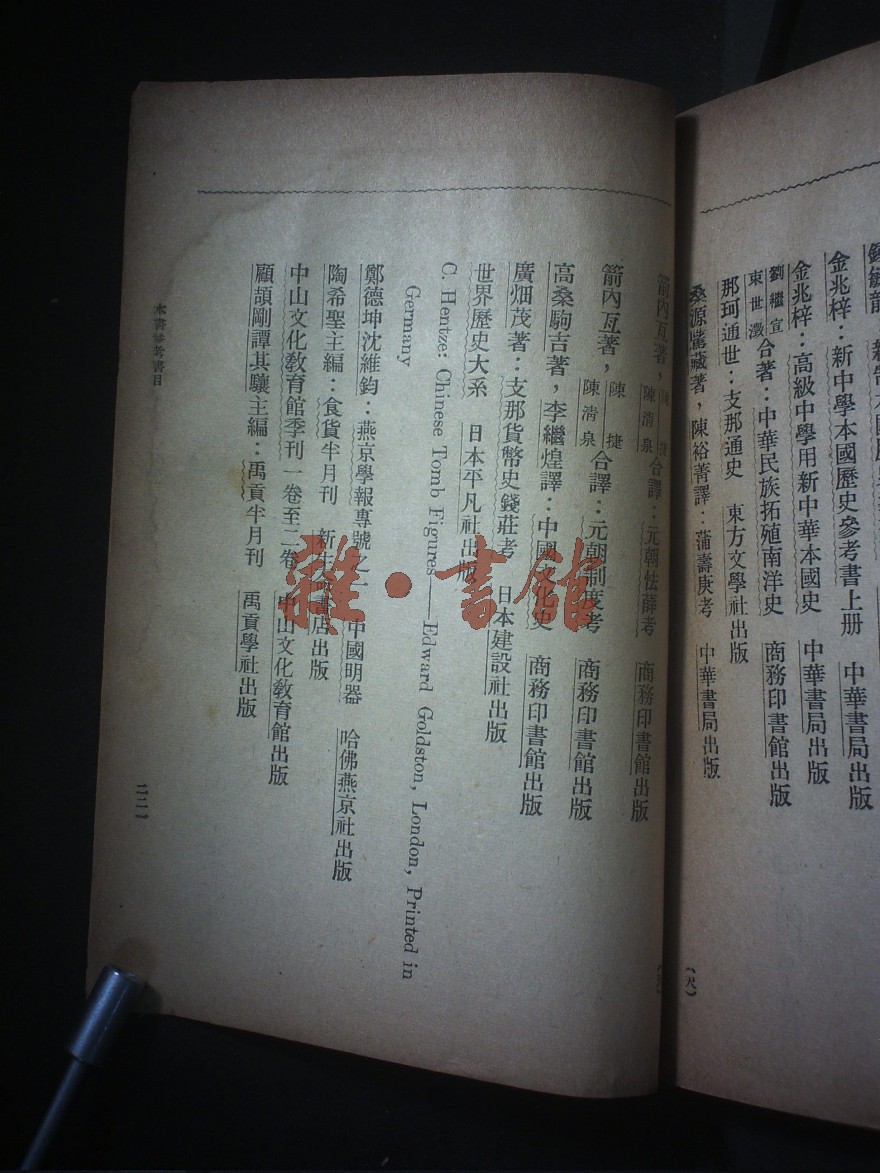 金兆梓：新中學本國歷史參考書上册　中華書局出版
金兆梓：高級中學用新中華本國史　中華書局出版
劉繼宣
束世澂合著：中華民族拓殖南洋史　商務印書館出版
那珂通世：支那通史　東方文學社出版
桑源隲藏著，陳裕菁譯：蒲壽庚考　中華書局出版
箭內亙著，陳捷
陳清泉合譯：元朝怯薛考　商務印書館出版
箭內亙著，陳捷
陳清泉合譯：元朝制度考　商務印書館出版
高桑駒吉著，李繼煌譯：中國文化史　商務印書館出版
廣畑茂著：支那貨幣史錢莊考　日本建設社出版
世界歷史大系　日本平凡社出版
C. Hentze: Chinese Tomb Figures——Edward Goldston, London, Printed in
Germany
鄭德坤沈維鈞：燕京學報專號之一　中國明器　哈佛燕京社出版
陶希聖主編：食貨半月刊　新生命書店出版
中山文化教育館季刊一卷至二卷　中山文化教育館出版
顧頡剛譚其驤主編：禹貢半月刊　禹貢學社出版
本書參考書目
雜·書館